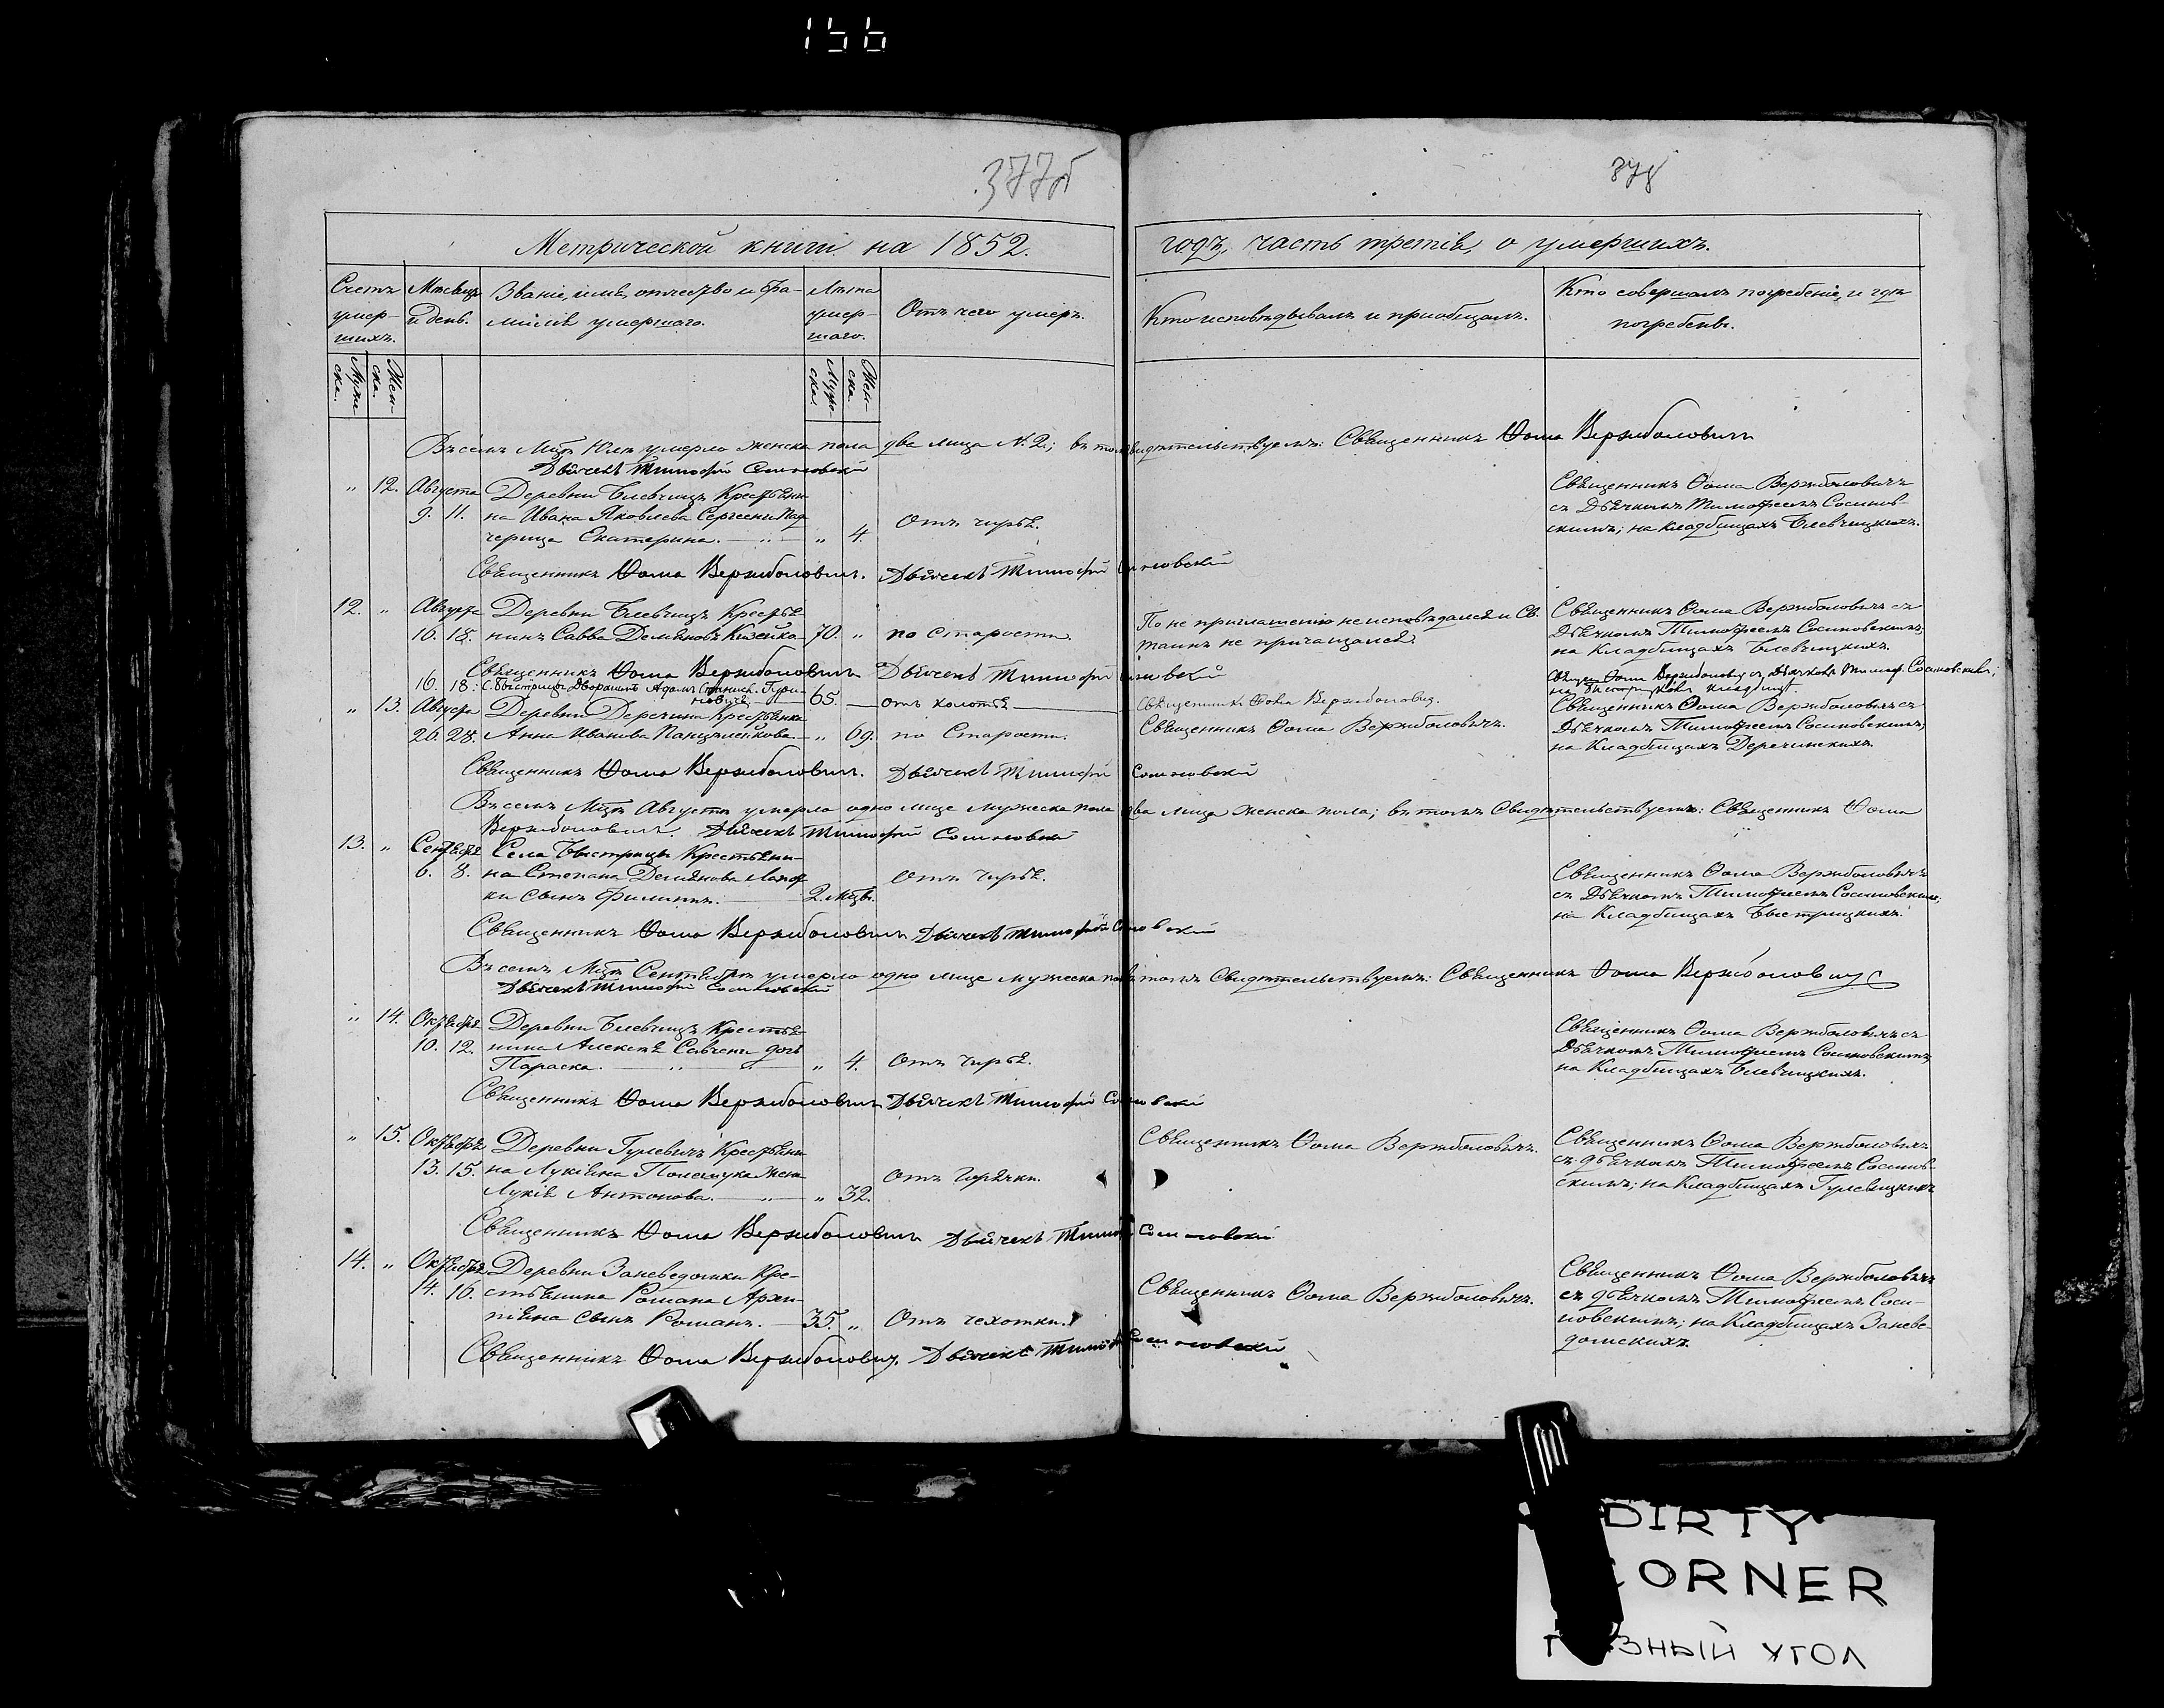 156
377б
378
Метрической книги на 1852. годъ, часть третія, о умершихъ.
Счетъ умер-шихъ.
Мѣсяцъ и день.
Званіе, имя, отчество и фа-
милія умершаго.
Лѣта умер-шаго.
Отъ чего умеръ.
Кто исповѣдывалъ и пріобщалъ.
Кто совершалъ погребеніе, и гдѣ
погребенъ.
Муже-ска. Жен-ска.
Муже-ска. Жен-ска.
Въ семъ Мцѣ Юлѣ умерло женска пола два лица № 2; въ томъ свидѣтельствуемъ: Священникъ Ѳома Вержболовичъ
Дьячекъ Тимофей Сосиновскій
„ 12. Августа Деревни Блевчицъ Крестьяни-
9. 11. на Ивана Яковлева Сергеени Пад-
черица Екатерина. „ 4. Отъ чирья.
Священникъ Ѳома Вержболовичъ
съ Дьячкомъ Тимофеемъ Сосинов-
скимъ; на кладбищахъ Блевчицкихъ.
Священникъ Ѳома Вержболовичъ. Дьячекъ Тимофей Сосиновскій
12. „ Августа Деревни Блевчицъ Крестья-
16. 18. нинъ Савва Демяновъ Кизейка 70. „ по старости.
По не приглашенію не исповѣдался и Св.
таинъ не причащался.
Священникъ Ѳома Вержболовичъ съ
Дьячкомъ Тимофеемъ Сосиновскимъ;
на Кладбищахъ Блевчицкихъ.
Священникъ Ѳома Вержболовичъ Дьячекъ Тимофей Сосиновскій
16. 18. С. Быстрицъ Дворянинъ Адамъ 65. отъ холотья
Священникъ Ѳома Вержболович.
Ѳома Вержболовичъ съ Дьячкомъ Тимоф. Сосиновскимъ;
на кладбищ.
„ 13. Августа Деревни Деречина Крестьянка
26. 28. Анна Иванова Панцялейкова „ 69. по Старости.
Священникъ Ѳома Вержболовичъ.
Священникъ Ѳома Вержболовичъ съ
Дьячкомъ Тимофеемъ Сосиновскимъ;
на Кладбищахъ Деречинскихъ.
Священникъ Ѳома Вержболовичъ. Дьячекъ Тимофей Сосновскій
Въ семъ Мцѣ Августѣ умерло одно лице мужеска пола два лица женска пола; въ томъ Свидѣтельствуемъ: Священникъ Ѳома
Вержболовичъ. Дьячекъ Тимофей Сосиновскій
13. „ Сентября Села Быстрицы Крестьяни-
6. 8. на Степана Демянова
ки сынъ Филиппъ. 2. мѣсц. Отъ чирья.
Священникъ Ѳома Вержболовичъ
съ Дьячкомъ Тимофеемъ Сосиновскимъ;
на Кладбищахъ Быстрицкихъ.
Священникъ Ѳома Вержболовичъ Дьячекъ Тимофей Сосиновскій
Въ семъ Мцѣ Сентябрѣ умерло одно лице мужеска пола въ томъ Свидѣтельствуемъ: Священникъ Ѳома Вержболовичъ
Дьячекъ Тимофей Сосиновскій
„ 14. Октября Деревни Блевчицъ Крестья-
10. 12. нина Алексѣя Савчени дочь
Параска. „ 4. Отъ чирья.
Священникъ Ѳома Вержболовичъ съ
Дьячкомъ Тимофеемъ Сосиновскимъ;
на Кладбищахъ Блевчицкихъ.
Священникъ Ѳома Вержболовичъ Дьячекъ Тимофей Сосиновскій
„ 15. Октября Деревни Гулевичъ Крестьяни-
13. 15. на Лукіяна Полещука жена
Лукія Антонова. „ 32. Отъ горячки.
Священникъ Ѳома Вержболовичъ.
Священникъ Ѳома Вержболовичъ
съ дьячкомъ Тимофеемъ Сосинов-
скимъ; на Кладбищахъ Гулевицкихъ
Священникъ Ѳома Вержболовичъ Дьячекъ Тимофей Сосиновскій
14. „ Октября Деревни Заневедомки Кре-
14. 16. стьянина Романа Архи-
піяна сынъ Романъ. 35. „ Отъ чехотки.
Священникъ Ѳома Вержболовичъ.
Священникъ Ѳома Вержболовичъ
съ дьячкомъ Тимофеемъ Соси-
новскимъ; на Кладбищахъ Заневе-
домскихъ.
Священникъ Ѳома Вержболовичъ Дьячекъ Тимофей Сосиновскій
DIRTY
CORNER
ГРЯЗНЫЙ УГОЛ